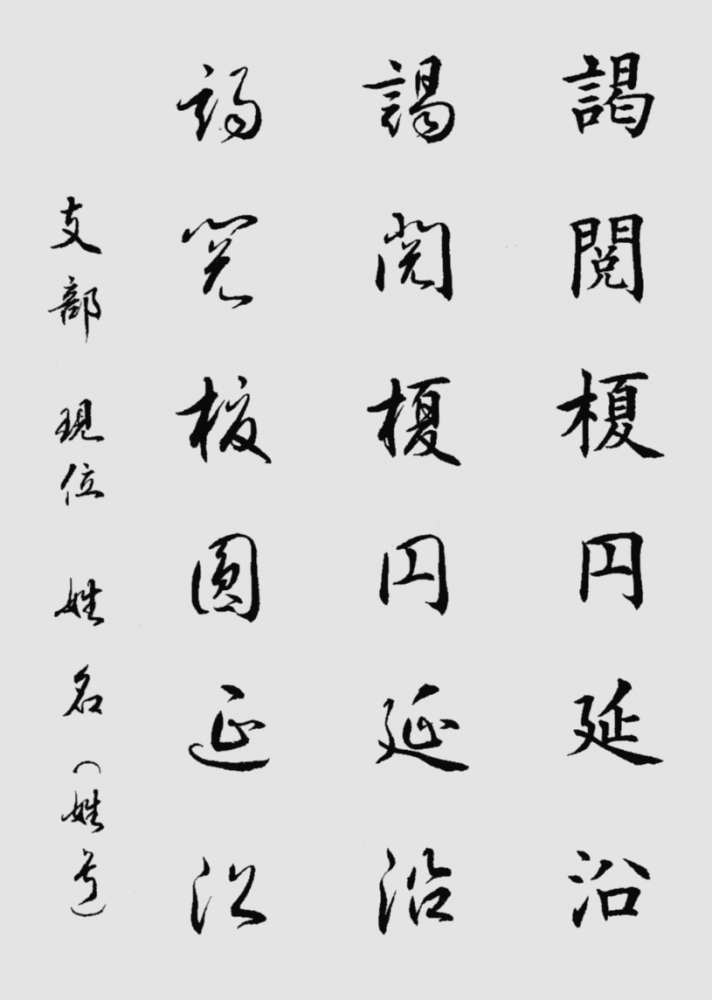 謁閲榎円延沿
謁閲榎円延沿
謁閲榎圓延沿
支部 現位 姓名(姓号)